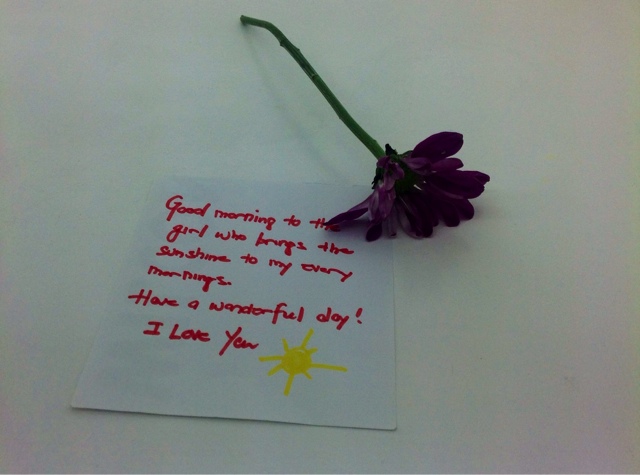 Good morning to the
girl who brings the
sunshine to my every
mornings.
Have a wonderful day!
I Love You